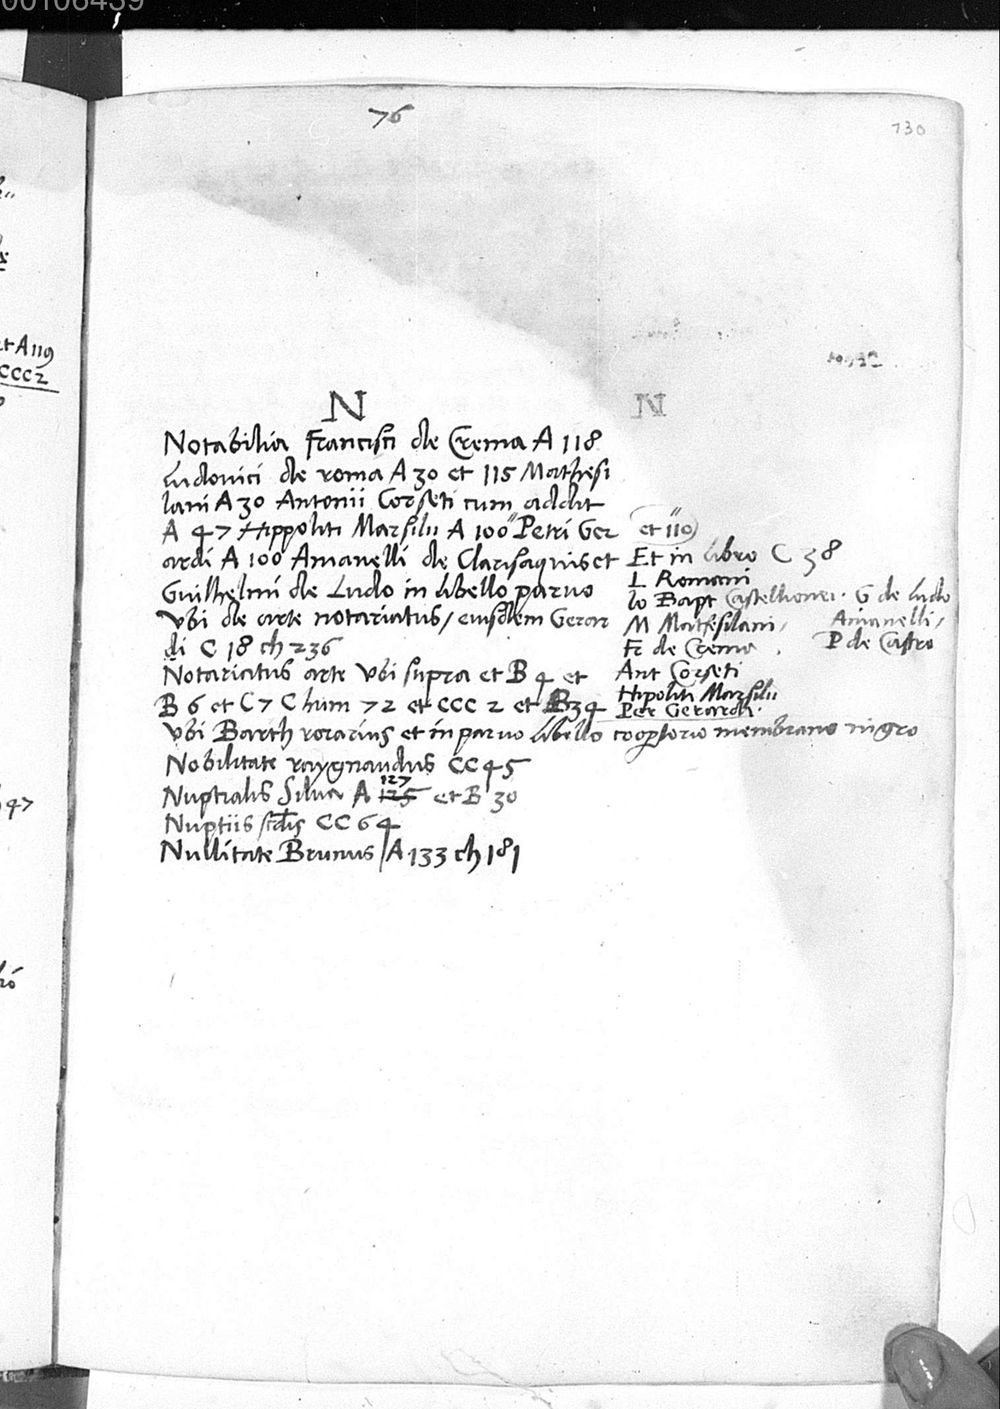 00106459
76
730
et A 119
CCC2
47
N
N
Notabilia Francisci de Crema A 118
Ludovici de roma A 30 et 115 Mathesi
lani A 30 Antonii Corseti cum addit
A 47 Hippoliti Marsilii A 100" Petri Ger
ardi A 100 Amanelli de Clarisaquis et
Guilhelmi de Ludo in libello paruo
Vbi de arte notariatus / eiusdem Gerar
di C 18 ch 236
et "110
Et in libro C 38
L Romani
Io Bapt Castellionei . G de Ludo
M Mathesilani / Amanelli /
Fr de Crema . P de Castro
Ant Corseti
Hipoliti Marsilii
Per Gerardi .
Notariatus arte Vbi supra et B 4 et
B 6 et C 7 C hum 72 et CCC 2 et B34
Vbi Barth rorarius et in paruo libello coopertorio membrano nigro
Nobilitate raygnaudus CC 45
Nuptialis Silua A 125 127 et B 30
Nuptiis CC 64
Nullitate Brunus / A 133 ch 181